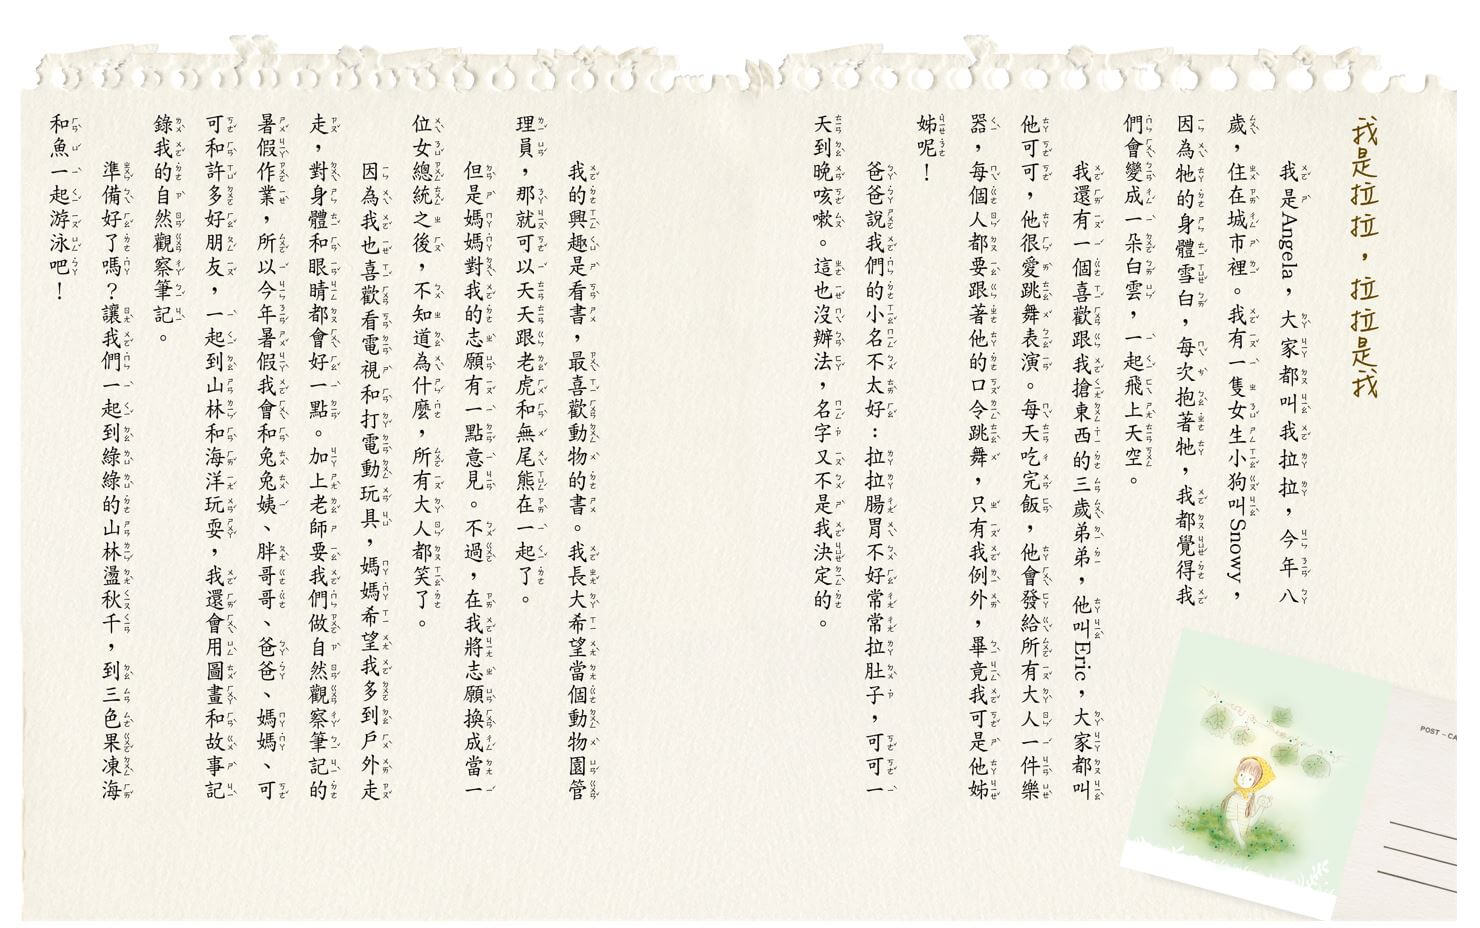 我是拉拉，拉拉是我
我是Angela，大家都叫我拉拉，今年八
歲，住在城市裡。我有一隻女生小狗叫Snowy，
因為牠的身體雪白，每次抱著牠，我都覺得我
們會變成一朵白雲，一起飛上天空。
我還有一個喜歡跟我搶東西的三歲弟弟，他叫Eric，大家都叫
他可可，他很愛跳舞表演。每天吃完飯，他會發給所有大人一件樂
器，每個人都要跟著他的口令跳舞，只有我例外，畢竟我可是他姊
姊呢！
爸爸說我們的小名不太好：拉拉腸胃不好常常拉肚子，可可一
天到晚咳嗽。這也沒辦法，名字又不是我決定的。
我的興趣是看書，最喜歡動物的書。我長大希望當個動物園管
理員，那就可以天天跟老虎和無尾熊在一起了。
但是媽媽對我的志願有一點意見。不過，在我將志願換成當一
位女總統之後，不知道為什麼，所有大人都笑了。
因為我也喜歡看電視和打電動玩具，媽媽希望我多到戶外走
走，對身體和眼睛都會好一點。加上老師要我們做自然觀察筆記的
暑假作業，所以今年暑假我會和兔兔姨、胖哥哥、爸爸、媽媽、可
可和許多好朋友，一起到山林和海洋玩耍，我還會用圖畫和故事記
錄我的自然觀察筆記。
準備好了嗎？讓我們一起到綠綠的山林盪秋千，到三色果凍海
和魚一起游泳吧！
POST-CA